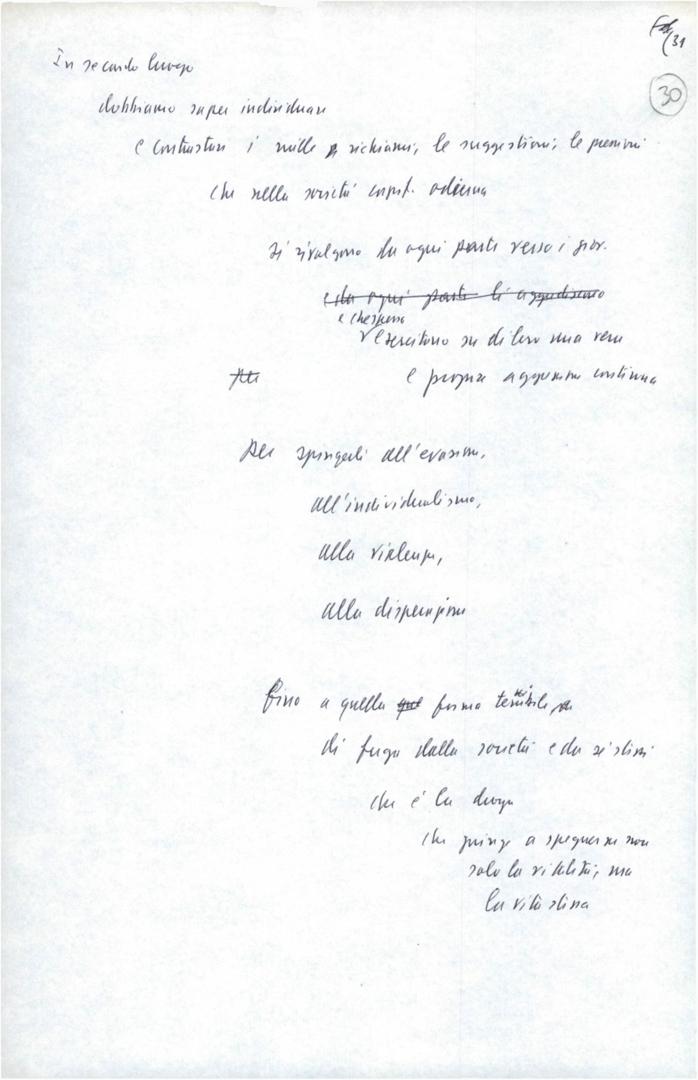 31
30
In secondo luogo
dobbiamo saper individuare
e contrastare i mille richiami, le suggestioni, le pressioni
che nella società capit. odierna
si rivolgono da ogni parte verso i giov.
e da ogni parte li aggrediscono
e che spesso
esercitano su di loro una vera
per
e propria aggressione continua
per spingerli all'evasione,
all'individualismo,
alla violenza,
alla disperazione
fino a quella forma terribile
di fuga dalla società e da se stessi
che è la droga
che giunge a spegnere non
solo la vitalità, ma
la vita stessa